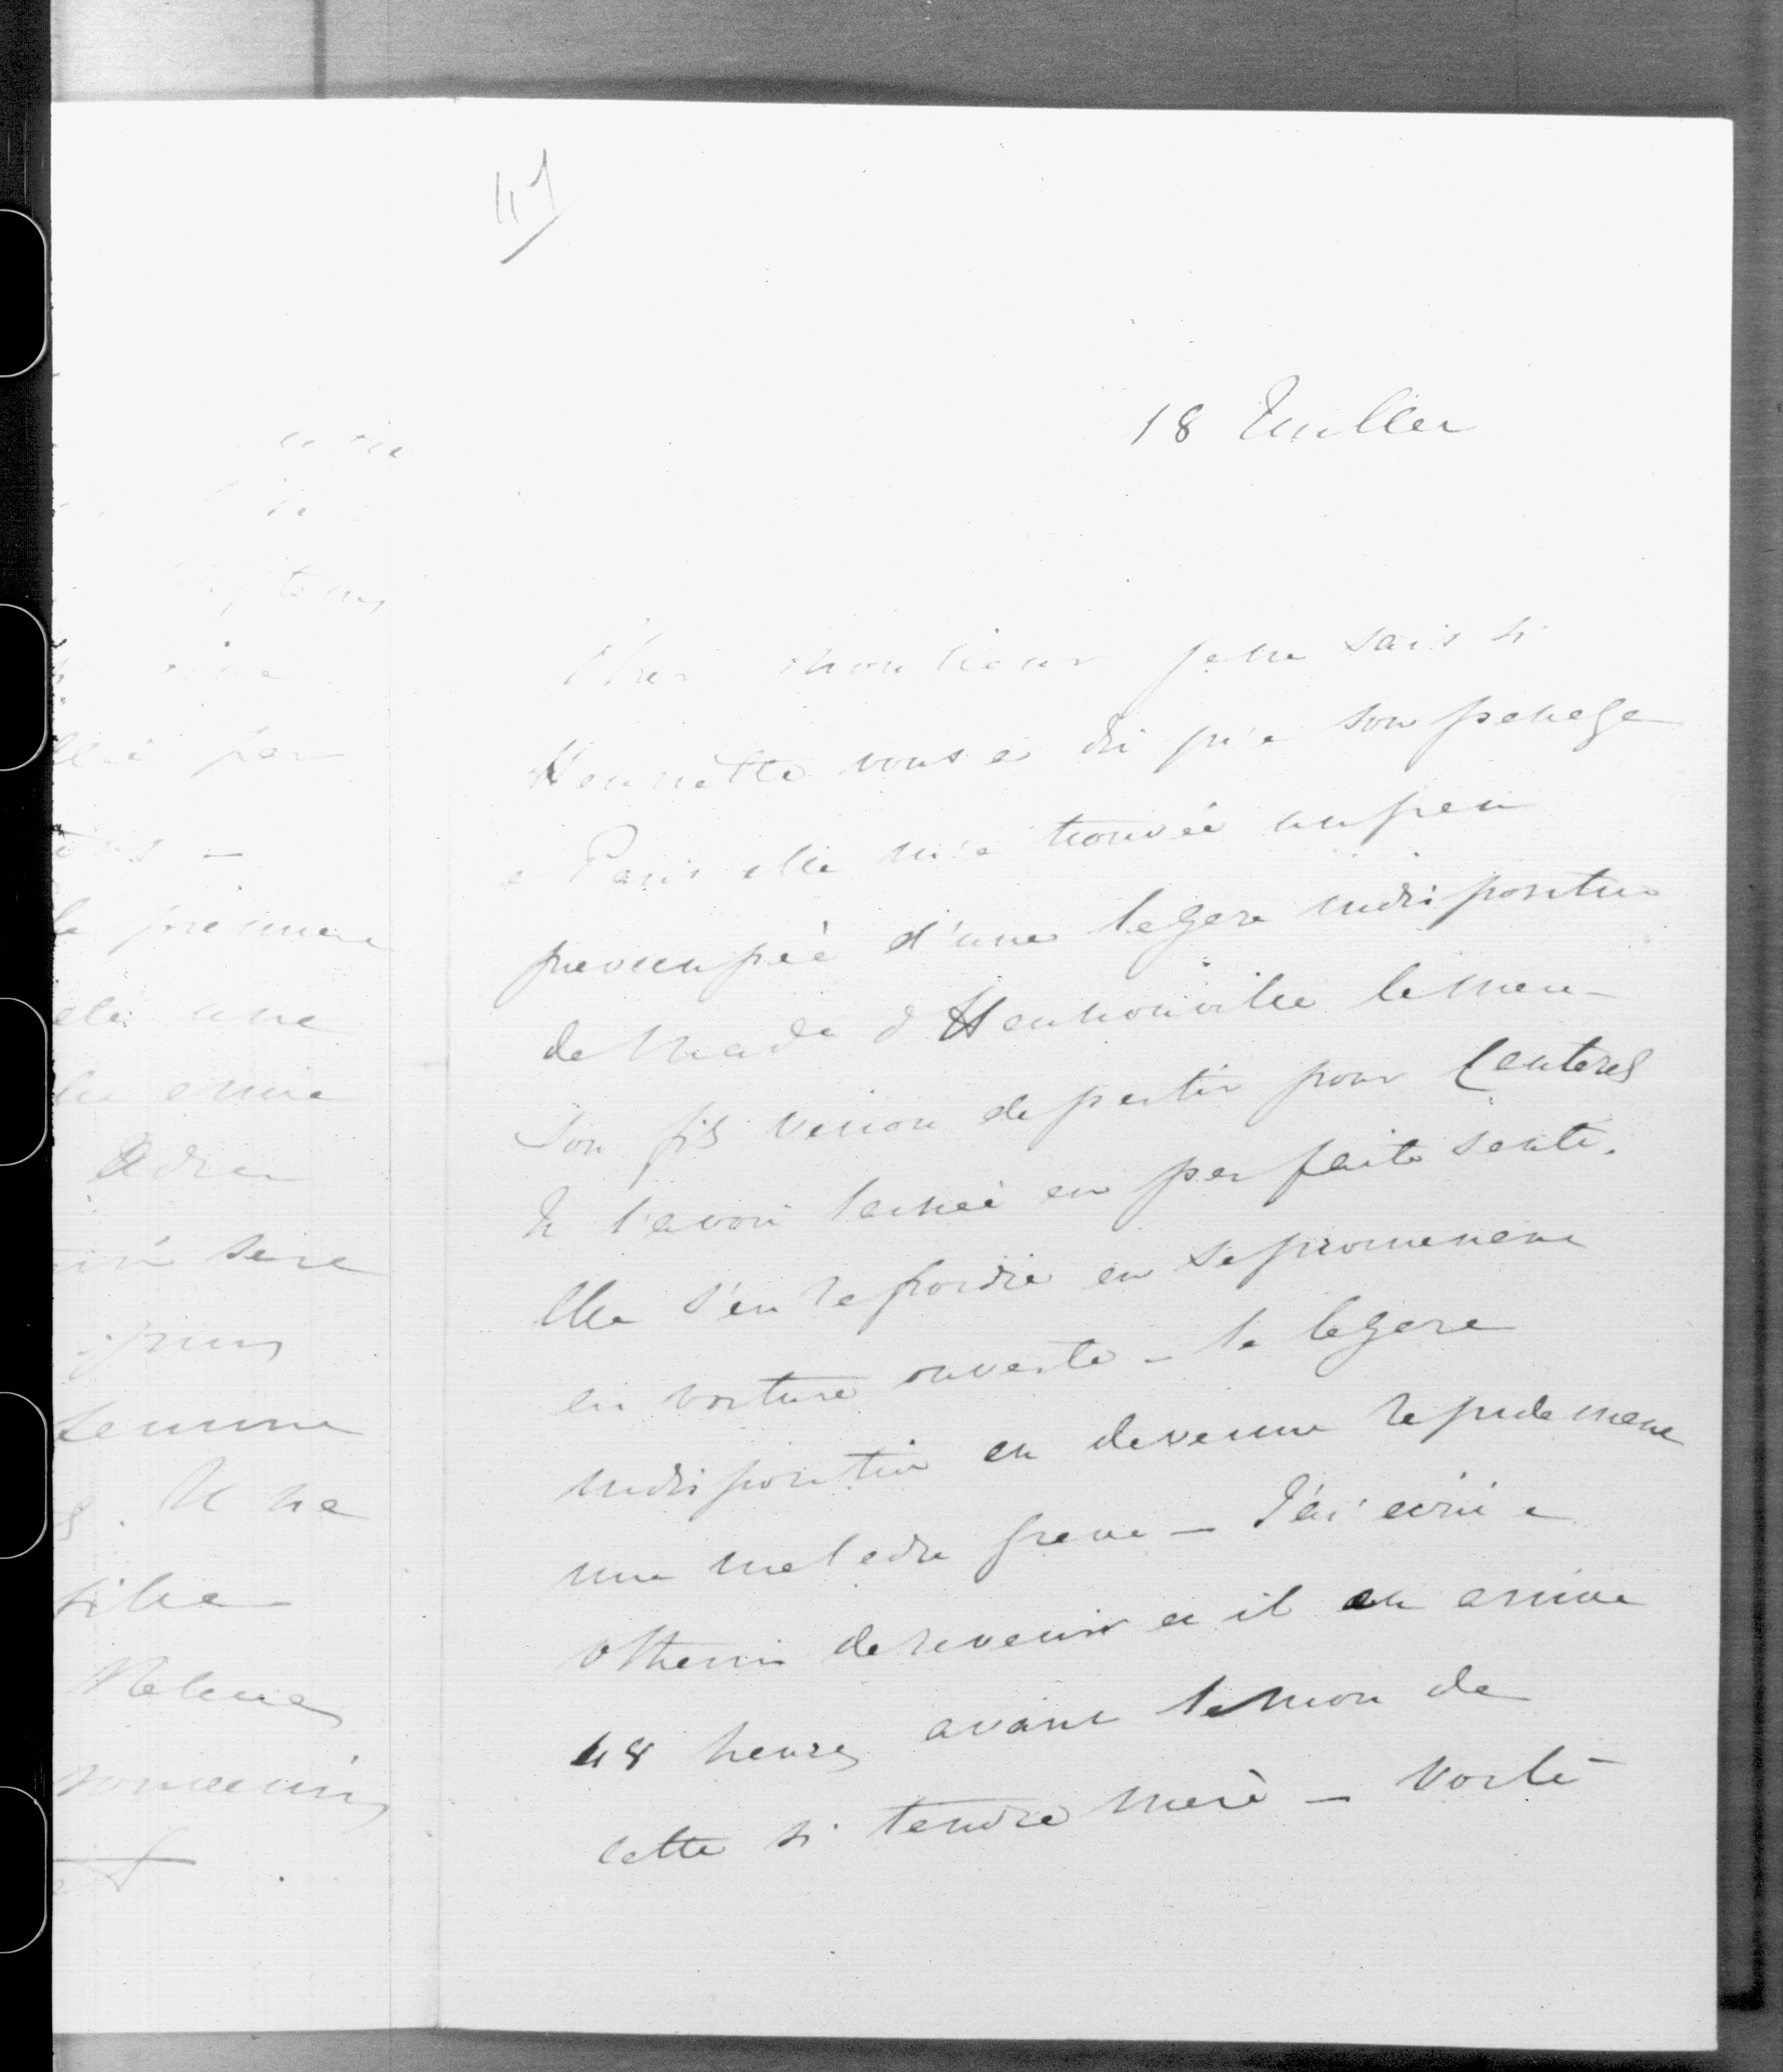 41
18 Juillet
Cher Monsieur je ne sais si
Henriette vous a dit qu'a son passage
a Paris elle m'a trouvée un peu
preoccupée d'une legere indisposition
de Made d'Haussonville la mere -
Son fils venait de partir pour Cauterets
Il l'avait laissée en parfaite santé.
Elle s'en refroidie en se promenant
en voiture ouverte - la legere
indisposition est devenue rapidement
une maladie grave - J'ai ecrit a
Othenin de revenir et il est arrivé
48 heures avant la mort de
cette si tendre mère - Voilà
par
la premiere
été une
amie
sera
puis
femme
Il ne
fille